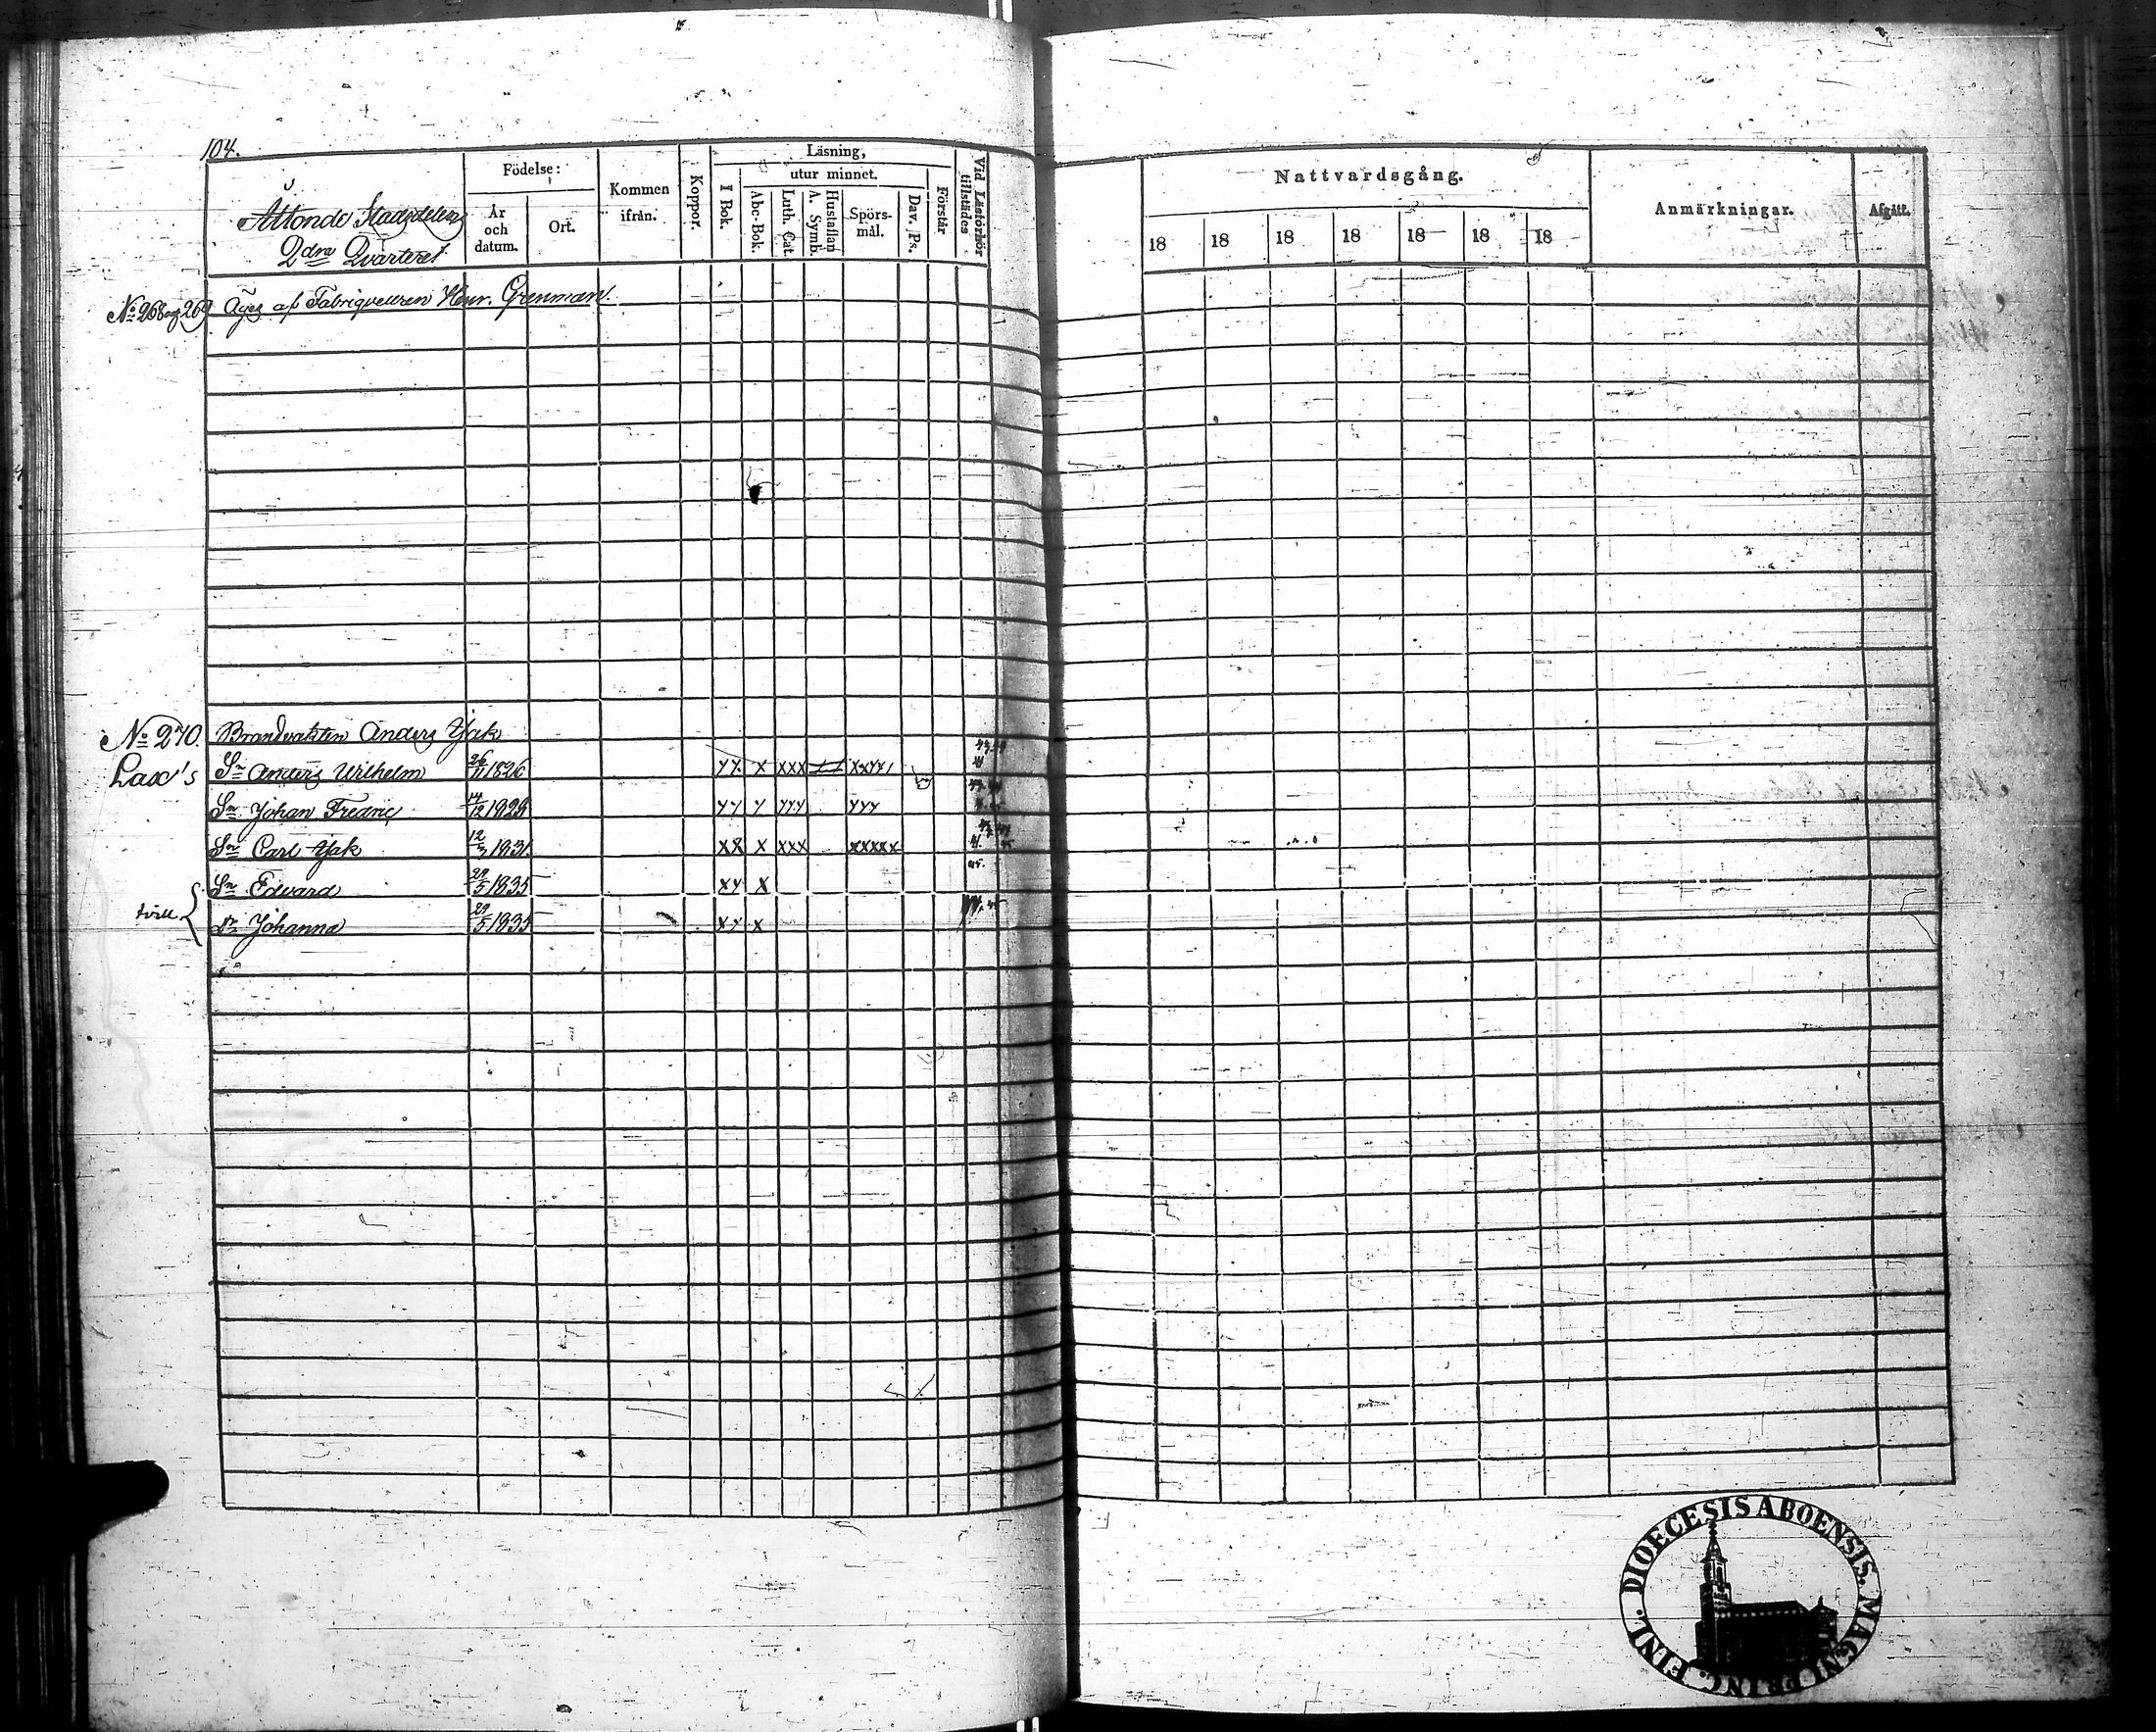 104.
Åttonde Stadsdelen
2dra Qvarteret
Födelse:
År och datum.
Ort.
Kommen ifrån.
Koppor.
Läsning,
I Bok.
utur minnet.
Abc-Bok.
Luth. Cat.
Hustaflan A. Symb.
Spörs-mål.
Dav. Ps.
Förstår
Vid Läsförhör tillstädes
Nattvardsgång.
18 18 18 18 18 18 18
Anmärkningar.
Afgått.
No 268 og 269 Äges af Fabriqueuren Henr. Grenman.
No 270. Brandvakten Anders Jak
Lax's Sn Anders Wilhelm 26/11 1826 xx x xxx
Sn Johan Fredric 14/12 1828 xx x xxx xxx
Sn Carl Jak 12/3 1831 xx x xxx xxxxx
Sn Edvard 29/5 1835 xx x
tvill Dr Johanna 29/5 1835 xx x
DIOECESIS ABOENSIS. MAGNI PRINC. FINL.